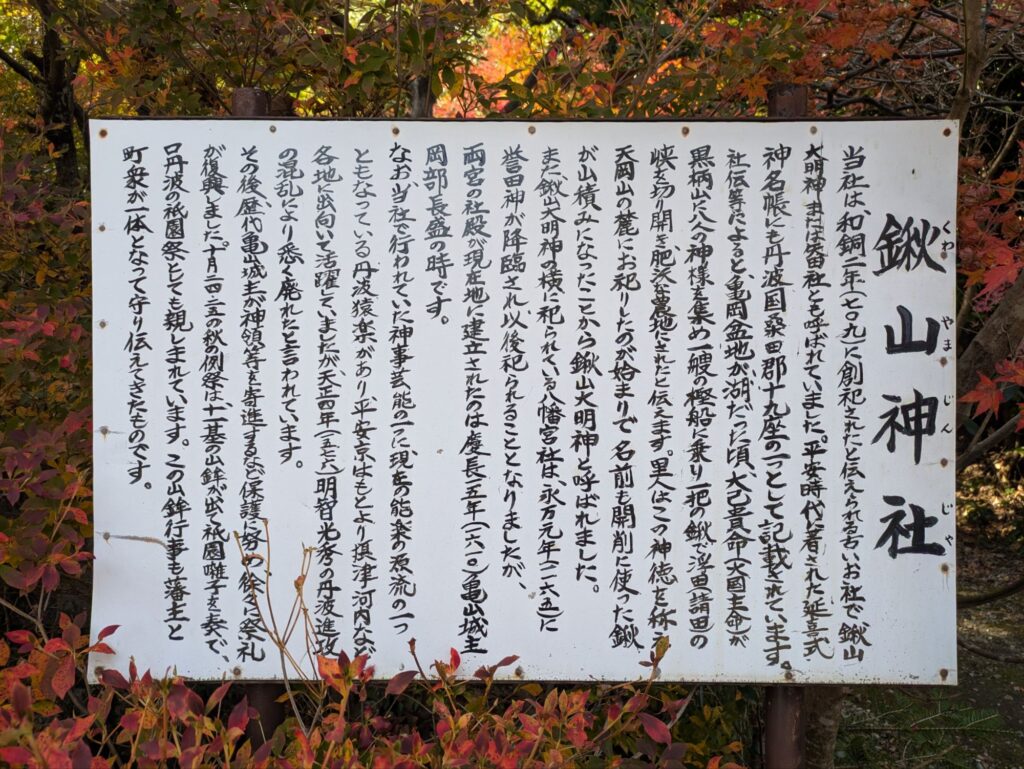 鍬山神社
くわ やま じん じゃ
当社は、和銅二年(七〇九)に創祀されたと伝えられる古いお社で鍬山
大明神または矢田社とも呼ばれていました。平安時代に著された延喜式
神名帳にも丹波国桑田郡十九座の一つとして記載されています。
社伝等によると、亀岡盆地が湖だった頃、大己貴命(大国主命)が
黒柄山に八人の神様を集め一艘の樫船に乗り一把の鍬で浮田(請田)の
峡を切り開き肥沃な農地にされたと伝えます。里人はこの神徳を称え
天岡山の麓にお祀りしたのが始まりで、名前も開削に使った鍬
が山積みになったことから鍬山大明神と呼ばれました。
また、鍬山大明神の横に祀られている八幡宮社は、永万元年(一一六五)に
誉田神が降臨され以後祀られることとなりましたが、
両宮の社殿が現在地に建立されたのは慶長十五年(一六一〇)亀山城主
岡部長盛の時です。
なお、当社で行われていた神事芸能の一つに、現在の能楽の源流の一つ
ともなっている丹波猿楽があり、平安京はもとより摂津河内など
各地に出向いて活躍していましたが、天正四年(一五七六)明智光秀の丹波進攻
の混乱により悉く廃れたと言われています。
その後、歴代亀山城主が神領等を寄進するなど保護に努め徐々に祭礼
が復興しました。十月二四・二五の秋例祭は、十一基の山鉾が出て祇園囃子を奏で、
口丹波の祇園祭としても親しまれています。この山鉾行事も藩主と
町衆が一体となって守り伝えてきたものです。